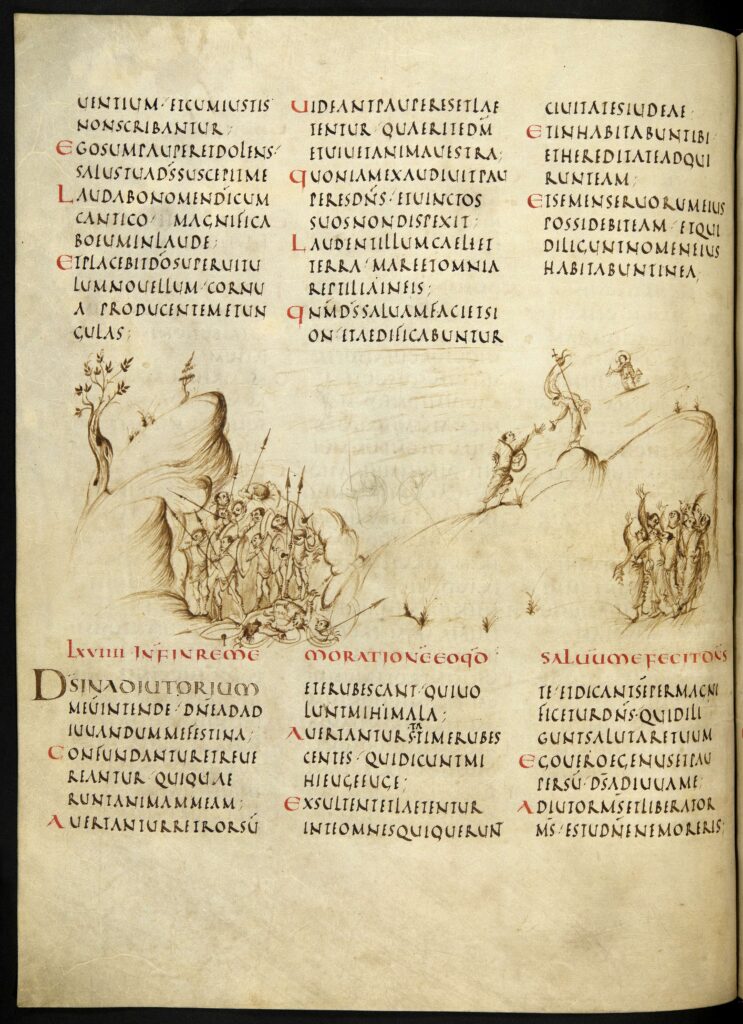 UENTIUM· ETCUMIUSTIS
NONSCRIBANTUR;
EGOSUMPAUPERETDOLENS·
SALUSTUADS̅SUSCEPITME
LAUDABONOMENDĪCUM
CANTICO· MAGNIFICA
BOEUMINLAUDE;
ETPLACEBITDŌSUPERUITU
LUMNOUELLUM· CORNU
A PRODUCENTEMETUN
GULAS;
UIDEANTPAUPERESETLAE
TENTUR· QUAERITEDM̅
ETUIUETANIMAUESTRA;
QUONIAMEXAUDIUITPAU
PERESDN̅S· ETUINCTOS
SUOSNONDISPEXIT;
LAUDENTILLUMCAELIET
TERRA· MAREETOMNIA
REPTILIAINEIS;
QN̅MD̅SSALUAMFACIETSI
ON· ETAEDIFICABUNTUR
CIUITATESIUDEAE;
ETINHABITABUNTIBI·
ETHEREDITATEADQUI
RUNTEAM;
ETSEMENSERUORUMEIUS
POSSIDEBITEAM· ETQUI
DILIGUNTNOMENEIUS
HABITABUNTINEA;
LXVIIII INFINREME
MORATIONEEOQD̅
SALUUMEFECITDN̅S
DS̅INADIUTORIUM
MEŪINTENDE· DN̅EADAD
IUUANDUMMEFESTINA;
CONFUNDANTURETREUE
REANTUR· QUIQUAE
RUNTANIMAMMEAM;
AUERTANTURRETRORSŪ
ETERUBESCANT· QUIUO
LUNTMIHIMALA;
AUERTANTURSTATIMERUBES
CENTES· QUIDICUNTMI
HIEUGEEUGE;
EXSULTENTETLAETENTUR
INTEOMNESQUIQUERUNT
TE· ETDICANTSĒPERMAGNI
FICETURDN̅S· QUIDILI
GUNTSALUTARETUUM
EGOUEROEGENUSETPAU
PERSŪ· DS̅ADIUUAME;
ADIUTORMS̅ETLIBERATOR
MS̅· ESTUDN̅ENEMORERIS;